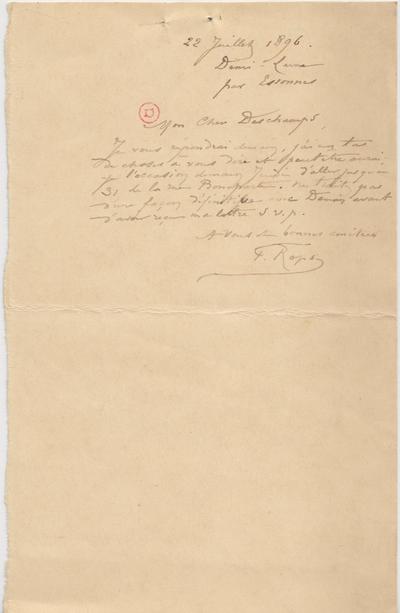 22 Juillet 1896.
Demi-Lune
par Essonnes
Mon Cher Deschamps,
Je vous répondrai demain, j'ai un tas
de choses à vous dire et peut être aurai
je l'occasion demain Jeudi d'aller jusqu'au
31 de la rue Bonaparte. Ne traitez pas
d'une façon définitive avec Deman avant
d'avoir reçu ma lettre S.V.P.
A vous et bonnes amitiés
F. Rops